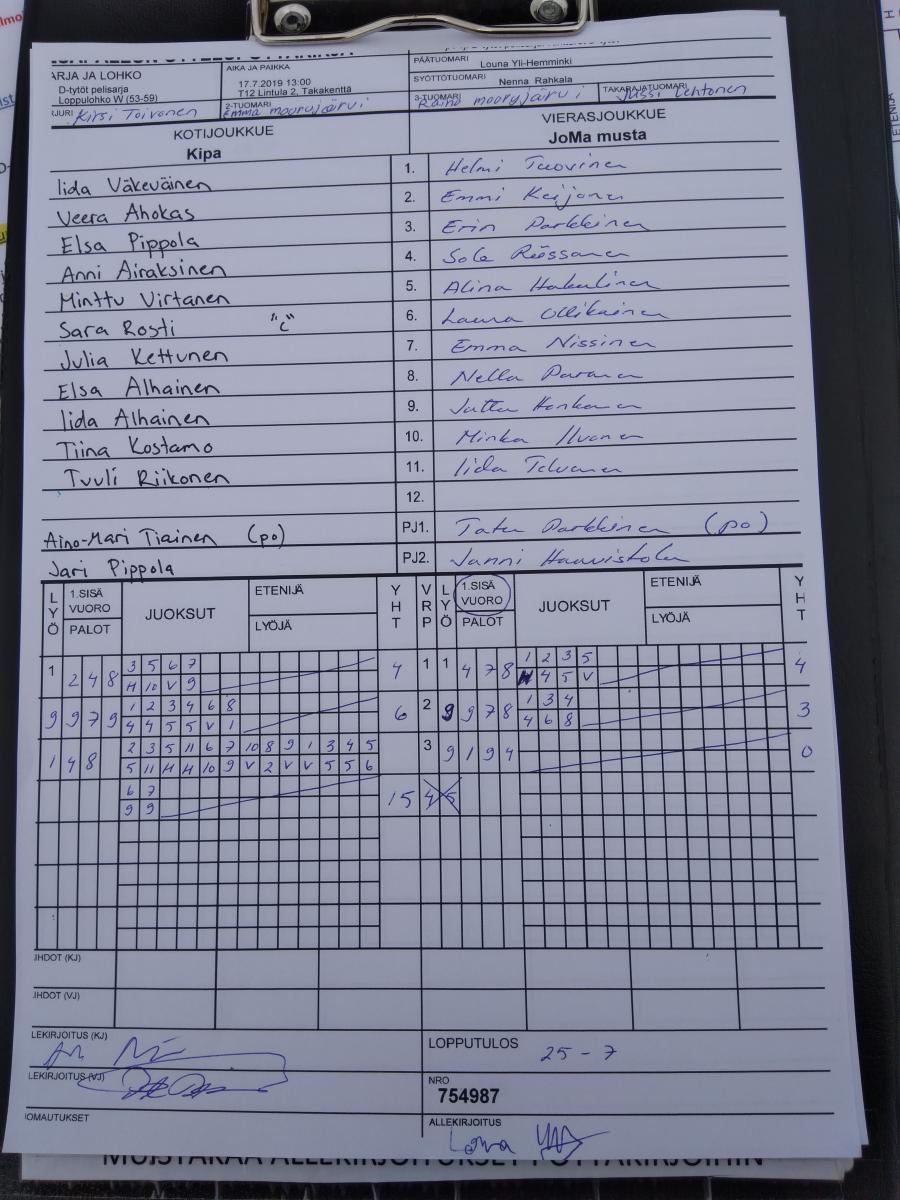 ARJA JA LOHKO
D-tytöt pelisarja
Loppulohko W (53-59)
AIKA JA PAIKKA
17.7.2019 13:00
T12 Lintula 2, Takakenttä
PÄÄTUOMARI Louna Yli-Hemminki
SYÖTTÖTUOMARI Nenna Rahkala
JURI Kirsi Toivonen 2-TUOMARI Emma 3-TUOMARI TAKARAJATUOMARI Jussi Lehtonen
KOTIJOUKKUE VIERASJOUKKUE
Kipa JoMa musta
Iida Väkeväinen 1. Helmi Tuovinen
Veera Ahokas 2. Emmi Keijonen
Elsa Pippola 3. Erin Parkkinen
Anni Airaksinen 4. Sole Rössänen
Minttu Virtanen 5. Alina Hakulinen
Sara Rosti "c" 6. Laura Ollikainen
Julia Kettunen 7. Emma Nissinen
Elsa Alhainen 8. Nella
Iida Alhainen 9. Jutta Honkanen
Tiina Kostamo 10. Minka
Tuuli Riikonen 11. Iida
12.
Aino-Mari Tiainen (po) PJ1. Parkkinen (po)
Jari Pippola PJ2. Janni
LYÖ 1.SISÄ VUORO PALOT JUOKSUT ETENIJÄ LYÖJÄ YHT VRP LYÖ 1.SISÄ VUORO PALOT JUOKSUT ETENIJÄ LYÖJÄ YHT
1 2 4 8 3 5 6 7 4 1 1 4 7 8 1 2 3 5 4
H 10 V 9 4 5 V
9 9 7 9 1 2 3 4 6 8 6 2 9 9 7 8 1 3 4 3
4 4 5 5 V 1 4 6 8
1 4 8 2 3 5 11 6 7 10 8 9 1 3 4 5 3 9 1 9 4 0
5 11 H H 10 9 V 2 V V 5 5 6
6 7 15
9 9
IHDOT (KJ)
IHDOT (VJ)
LEKIRJOITUS (KJ)
LOPPUTULOS 25 - 7
LEKIRJOITUS (VJ)
NRO
754987
OMAUTUKSET
ALLEKIRJOITUS
MUISTAKAA ALLEKIRJOITUKSET PÖYTÄKIRJOIHIN